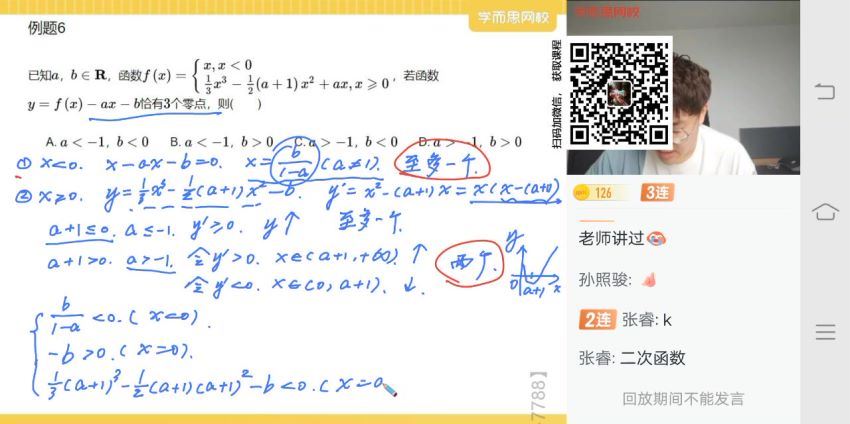 例题6
学而思网校
已知a, b ∈ R, 函数f(x) = { x, x < 0
1/3x³ − 1/2(a + 1)x² + ax, x ⩾ 0 , 若函数
y = f(x) − ax − b恰有3个零点, 则( )
A. a < −1, b < 0 B. a < −1, b > 0 C. a > −1, b < 0 D. a > −1, b > 0
① x<0. x-ax-b=0. x= b/(1-a) (a≠1). 至多一个.
② x≥0. y= 1/3x³- 1/2(a+1)x²-b. y'=x²-(a+1)x = x(x-(a+1))
a+1≤0. a≤-1. y'≥0. y↑ 至多一个.
a+1>0. a>-1. 令y'>0. x∈(a+1,+∞). ↑ 两个.
令y'<0. x∈(0,a+1). ↓.
y
0 a+1 x
{ b/(1-a) <0. (x<0).
-b>0. (x=0).
1/3(a+1)³- 1/2(a+1)(a+1)²-b<0. (x=a
学而思网校
扫码加微信, 获取课程
7788】
126 3连
老师讲过
孙照骏:
2连 张睿: k
张睿: 二次函数
回放期间不能发言